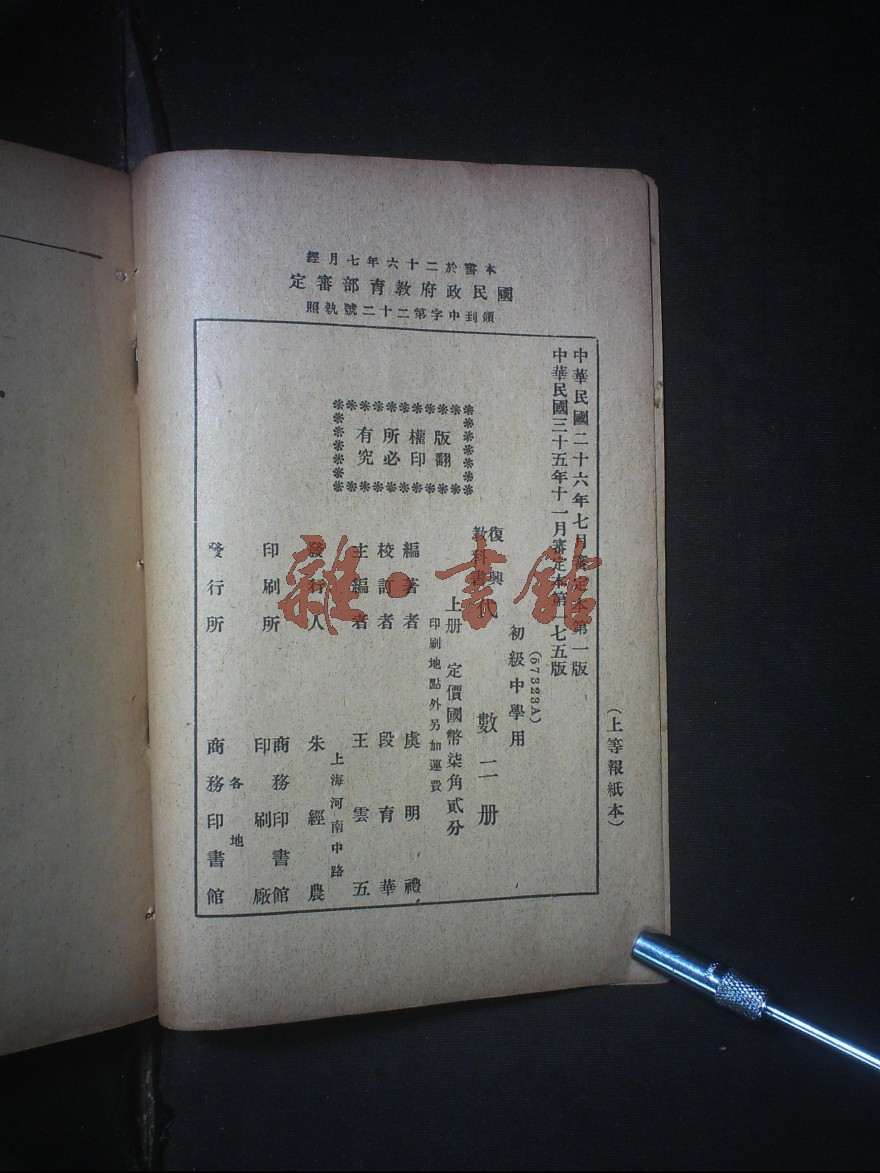 本書於二十六年七月經
國民政府教育部審定
領到中字第二十二號執照
(上等報紙本)
中華民國二十六年七月審定本第一版
中華民國三十五年十一月審定本第一七五版
(57323A)
初級中學用
復興教科書
代數二册
上册 定價國幣柒角貳分
印刷地點外另加運費
版權所有
翻印必究
編著者 虞明禮
校訂者 段育華
主編者 王雲五
上海河南中路
發行人 朱經農
印刷所 商務印書館印刷廠
各地
發行所 商務印書館
雜·書館